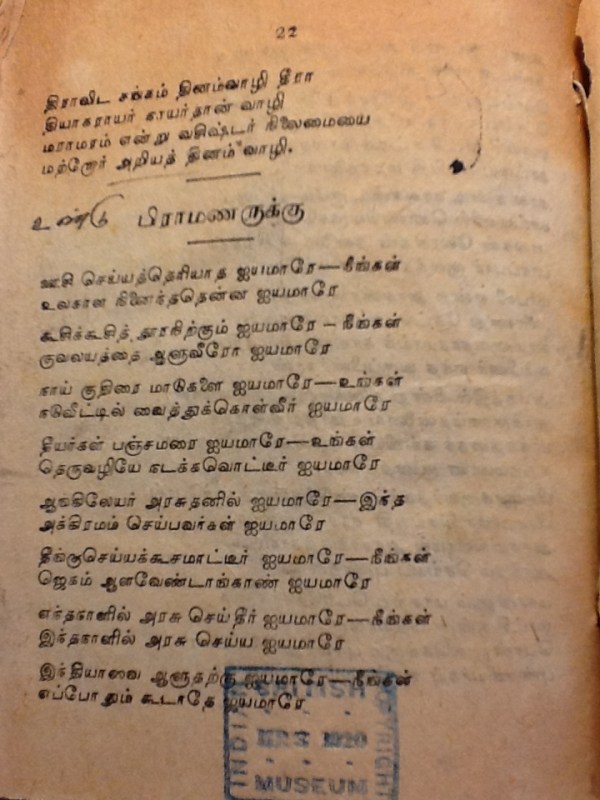 22
திராவிட சங்கம் தினம்வாழி தீரா
தியாகராயர் காயர்தான் வாழி
மராமரம் என்று வசிஷ்டர் நிலைமையை
மற்றோர் அறியத் தினம் வாழி.
உண்டு பிராமணருக்கு
செய்யத்தெரியாத ஐயமாரே—நீங்கள்
நினைந்ததென்ன ஐயமாரே
கூசிக்கூசித் தூரநிற்கும் ஐயமாரே — நீங்கள்
குவலயத்தை ஆளுவீரோ ஐயமாரே
நாய் குதிரை மாடுகளை ஐயமாரே—உங்கள்
நடுவீட்டில் வைத்துக்கொள்வீர் ஐயமாரே
தீயர்கள் பஞ்சமரை ஐயமாரே—உங்கள்
தெருவழியே நடக்கவொட்டீர் ஐயமாரே
ஆங்கிலேயர் அரசுதனில் ஐயமாரே—இந்த
அக்கிரமம் செய்பவர்கள் ஐயமாரே
தீங்குசெய்யக்கூசமாட்டீர் ஐயமாரே—நீங்கள்
ஜெகம் ஆளவேண்டாங்காண் ஐயமாரே
எந்தநாளில் அரசு செய்தீர் ஐயமாரே—நீங்கள்
இந்தநாளில் அரசு செய்ய ஐயமாரே
இந்தியாவை ஆளுதற்கு ஐயமாரே—நீங்கள்
எப்போதும் கூடாதே ஐயமாரே
BRITISH
1920
MUSEUM